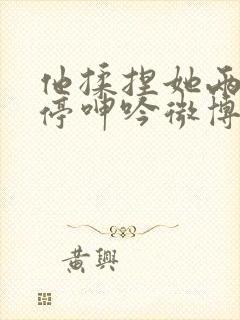 他揉捏她两
停呻吟微博
黄興